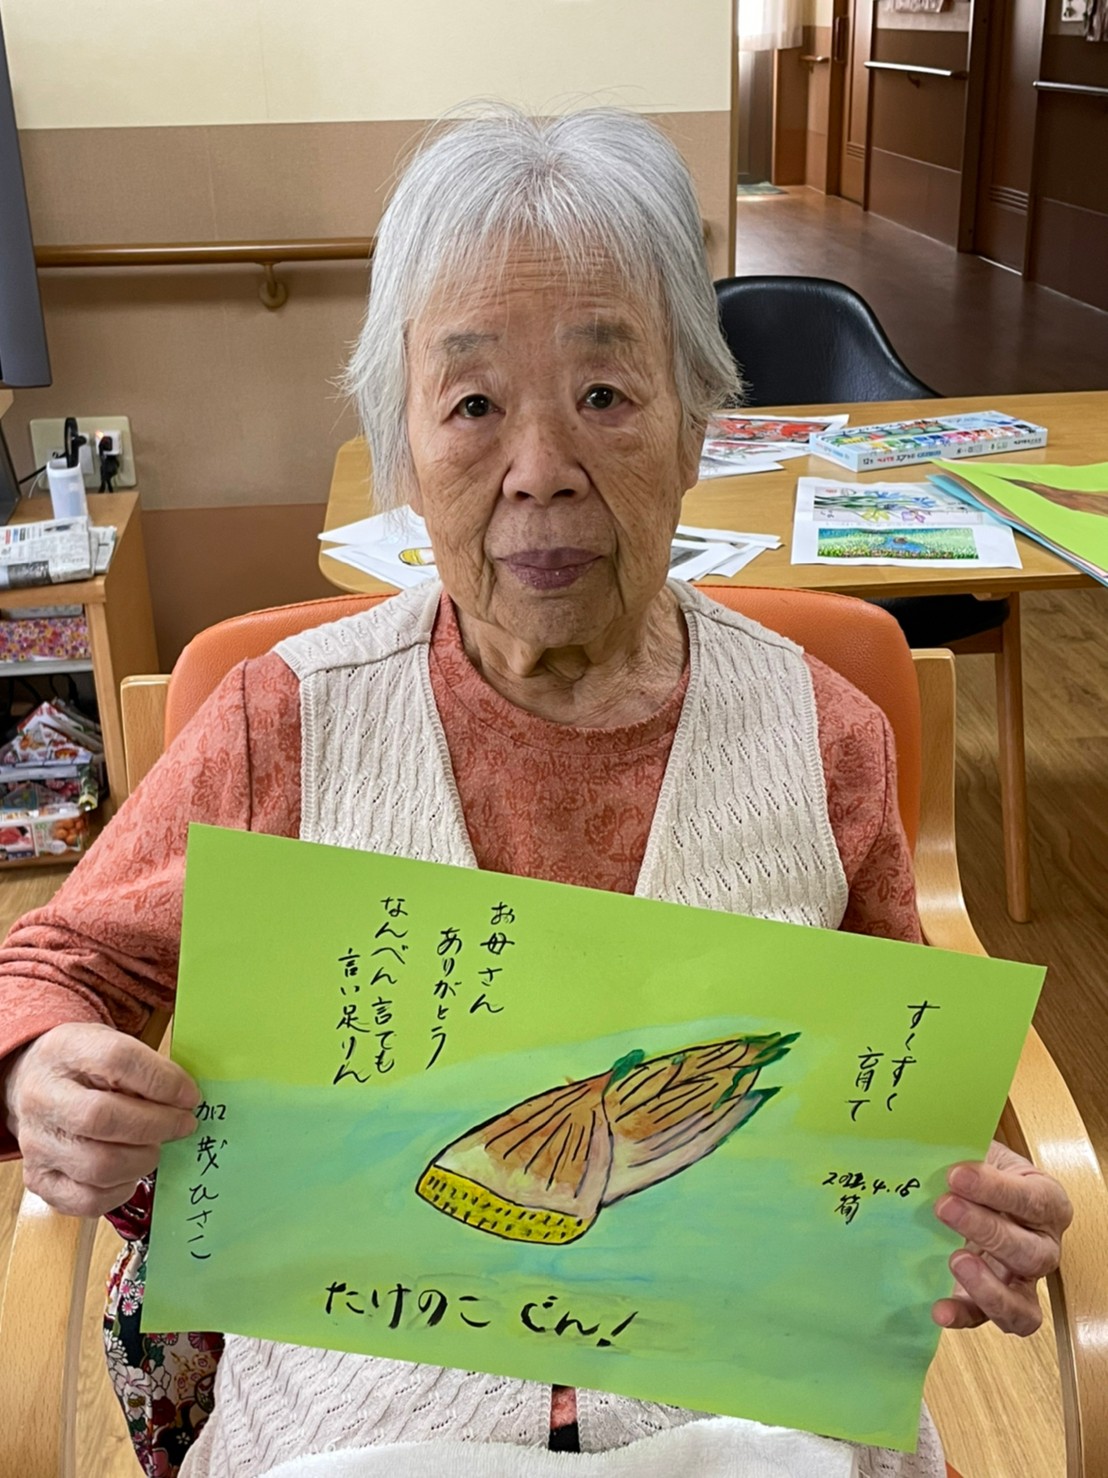 すくすく
育て
筍
お母さん
ありがとう
なんべん言ても
言い足りん
加茂ひさこ
たけのこ ぐん!